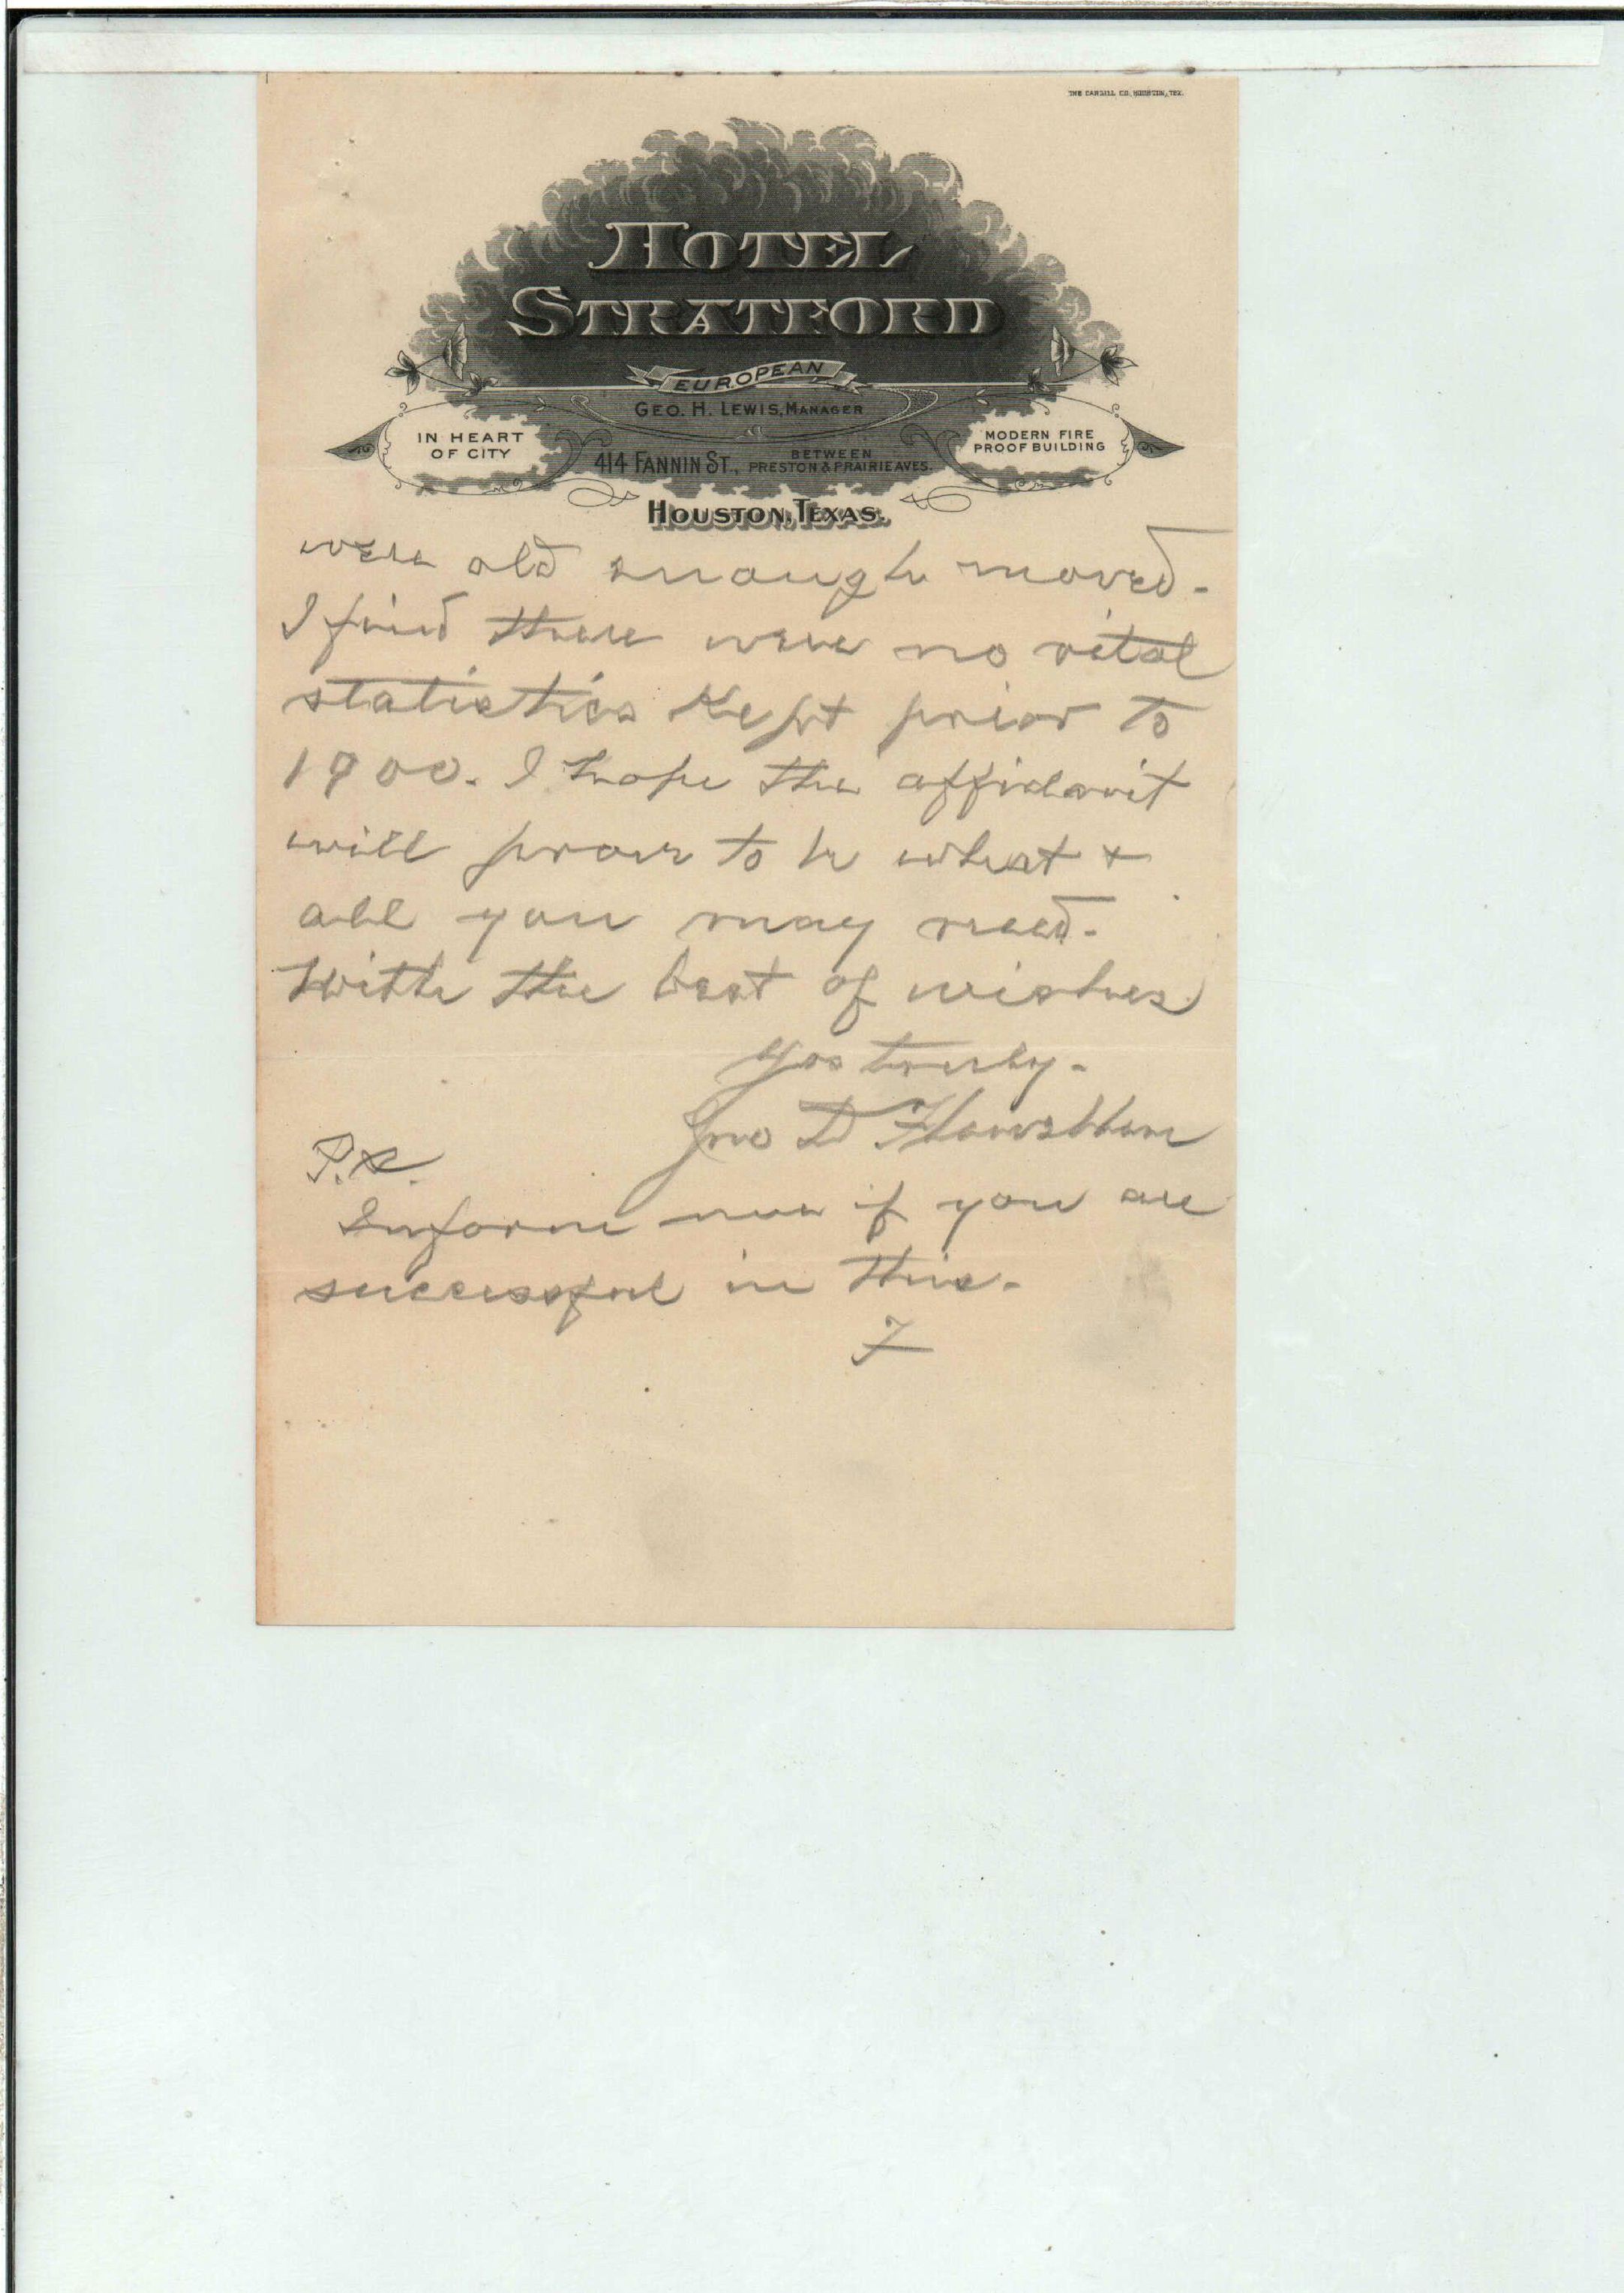 THE CARGILL CO. HOUSTON, TEX.
HOTEL
STRATFORD
EUROPEAN
GEO. H. LEWIS, MANAGER
IN HEART
OF CITY
MODERN FIRE
PROOF BUILDING
414 FANNIN ST., BETWEEN PRESTON & PRAIRIE AVES.
HOUSTON, TEXAS.
were old enough moved.
I find there were no vital
statistics kept prior to
1900. I hope the affidavit
will prove to be what &
all you may need.
With the best of wishes
Yos truly.
Jno D
P.S.
Inform me if you are
successful in this.
F